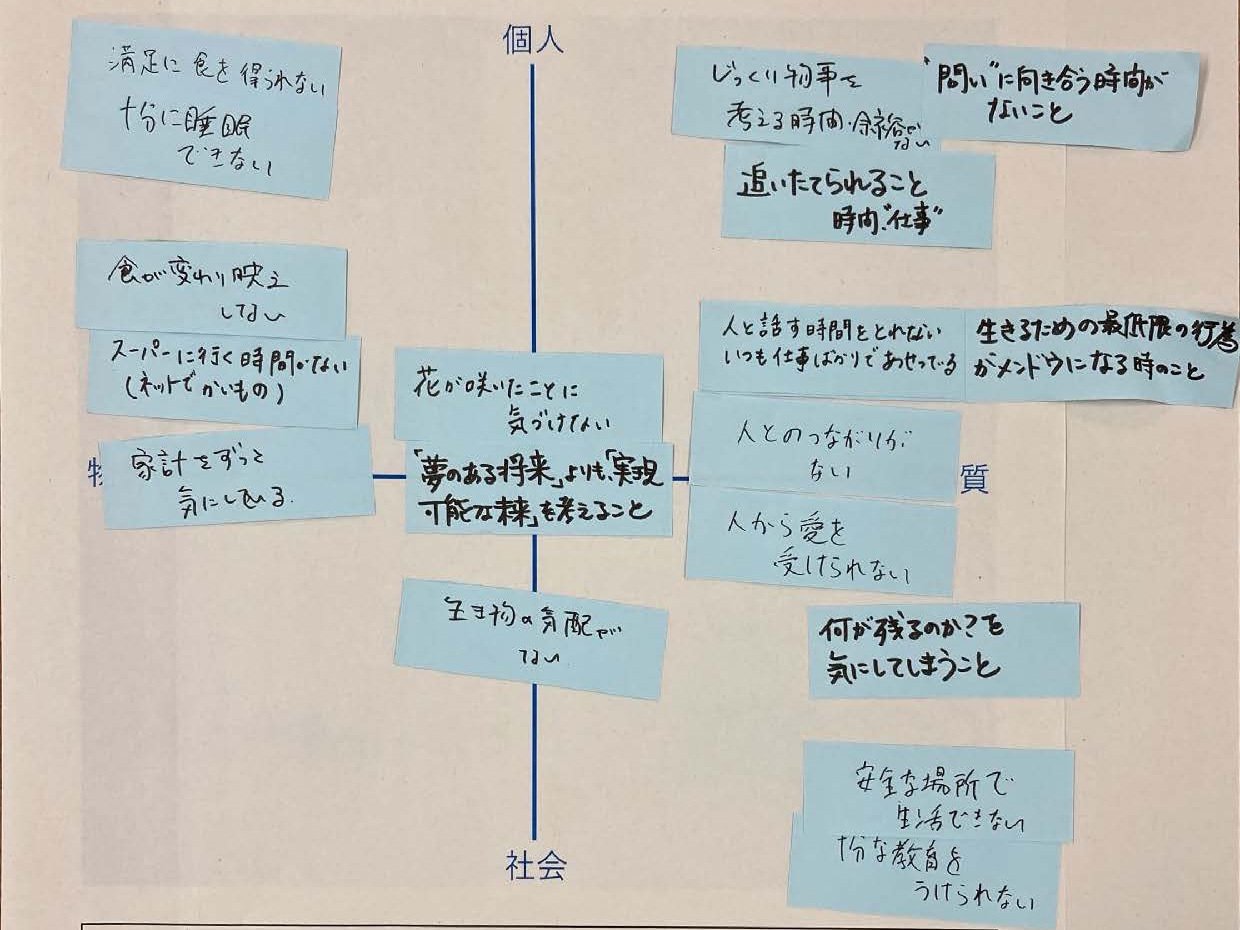 個人
満足に食を得られない
十分に睡眠
できない
じっくり物事を
考える時間・余裕が
ない
"問い"に向き合う時間が
ないこと
追いたてられること
時間、"仕事"
食が変わり映え
しない
スーパーに行く時間がない
(ネットでかいもの)
家計をずっと
気にしている.
花が咲いたことに
気づけない
「夢のある将来」よりも、「実現
可能な未来」を考えること
生き物の気配が
ない
人と話す時間をとれない
いつも仕事ばかりであせっている
生きるための最低限の行為
がメンドウになる時のこと
人とのつながりが
ない
人から愛を
受けられない
物
質
何が残るのか?を
気にしてしまうこと
安全な場所で
生活できない
十分な教育を
うけられない
社会